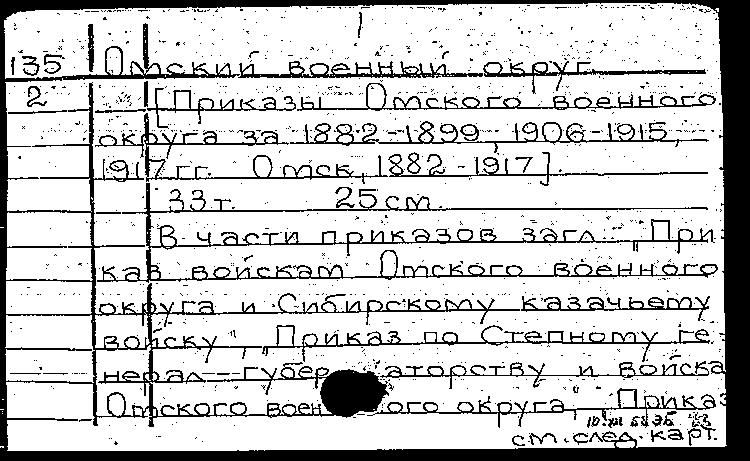 135 Омский военный округ
2 [Приказы Омского военного
округа за 1882-1899, 1906-1915,
1917 гг. Омск, 1882-1917].
33 т. 25 см.
В части приказов загл.- „При-
каз войскам Омского военного
округа и Сибирскому казачьему
войску", „Приказ по Степному ге-
нерал-губер аторству и войска
Омского воен ого округа", Приказ
см. след. карт.